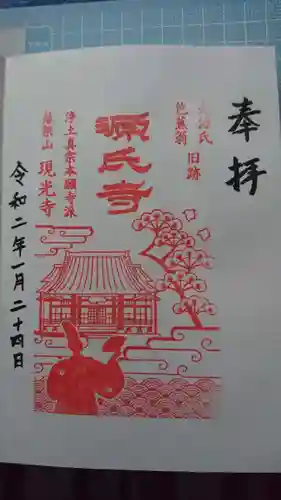 奉拝
光源氏
芭蕉翁 旧跡
源氏寺
浄土真宗本願寺派
藩架山 現光寺
令和二年一月二十四日